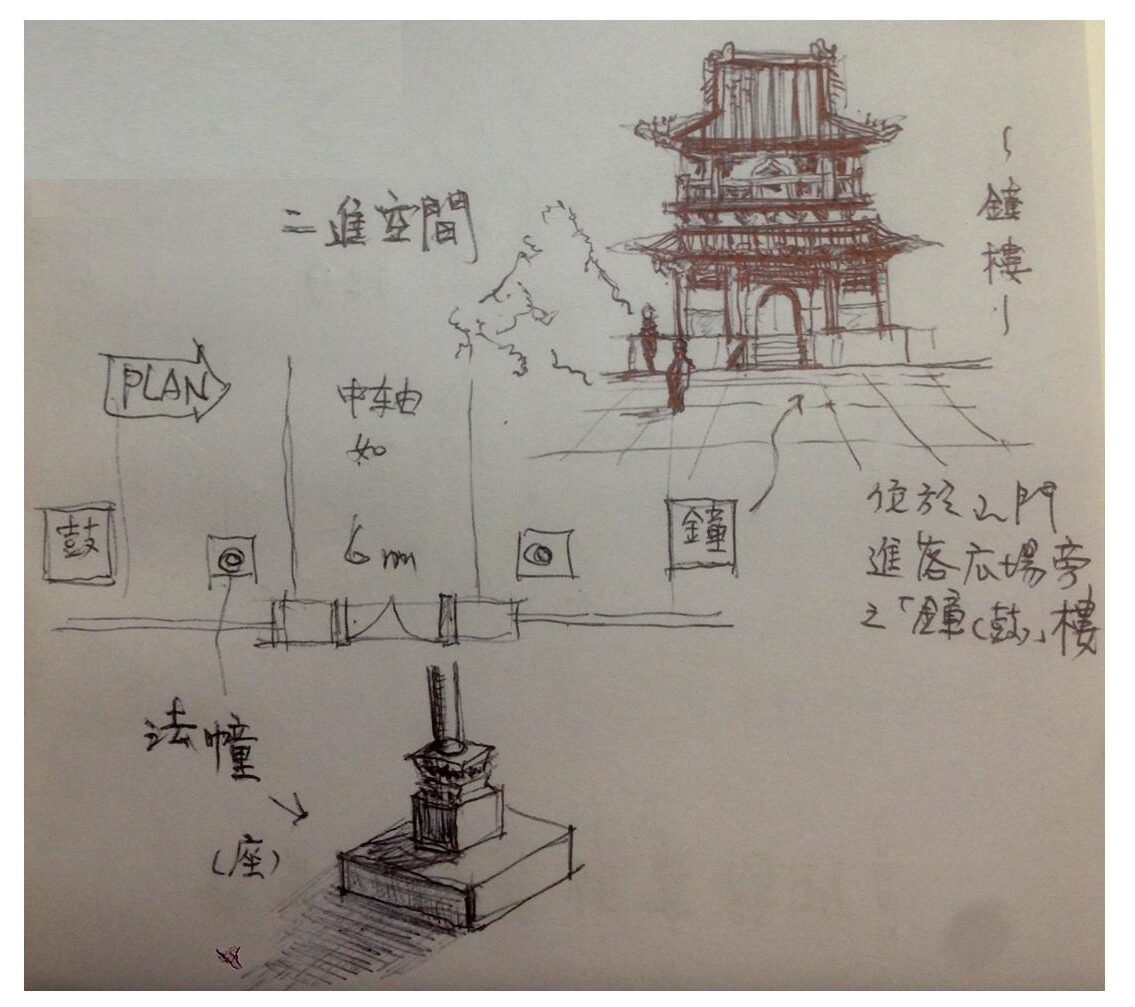 二進空間
~鐘樓~
PLAN
中轴
如
6m
鼓
鐘
位於山門
進落広場旁
之「鐘(鼓)」樓
法幢
(座)